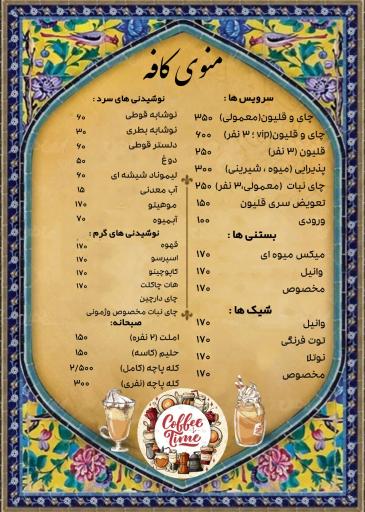 منوی کافه
سرویس ها :
چای و قلیون(معمولی) ۳۵۰
چای و قلیون(vip ؛ ۳ نفر) ۶۰۰
قلیون (۳ نفر) ۲۵۰
پذیرایی (میوه ، شیرینی) ۳۰۰
چای نبات (معمولی،۳ نفر) ۲۵۰
تعویض سری قلیون ۱۵۰
ورودی ۱۰۰
بستنی ها :
میکس میوه ای ۱۷۰
وانیل ۱۷۰
مخصوص ۱۷۰
شیک ها :
وانیل ۱۷۰
توت فرنگی ۱۷۰
نوتلا ۱۷۰
مخصوص ۱۷۰
نوشیدنی های سرد :
نوشابه قوطی ۶۰
نوشابه بطری ۳۰
دلستر قوطی ۶۰
دوغ ۵۰
لیموناد شیشه ای ۶۰
آب معدنی ۱۵
موهیتو ۱۷۰
آبمیوه ۷۰
نوشیدنی های گرم :
قهوه ۱۷۰
اسپرسو ۱۷۰
کاپوچینو ۱۷۰
هات چاکلت ۱۷۰
چای دارچین
چای نبات مخصوص وژمونی
صبحانه:
املت (۲ نفره) ۱۵۰
حلیم (کاسه) ۱۵۰
کله پاچه (کامل) ۲/۵۰۰
کله پاچه (نفری) ۳۰۰
Coffee
Time